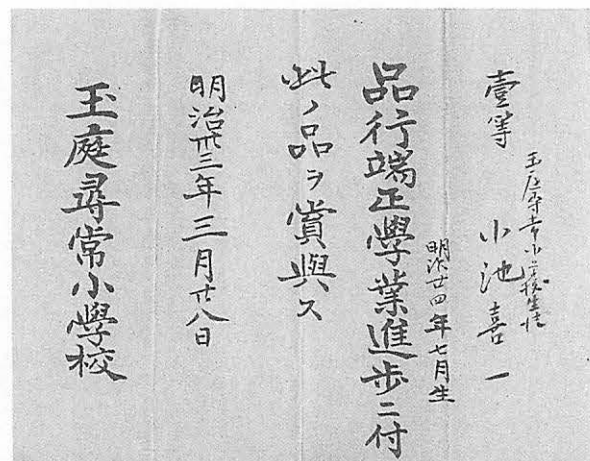 壹等
玉庭尋常小学校生徒
小池喜一
明治廿四年七月生
品行端正學業進歩ニ付
此ノ品ヲ賞與ス
明治卅三年三月廿八日
玉庭尋常小學校